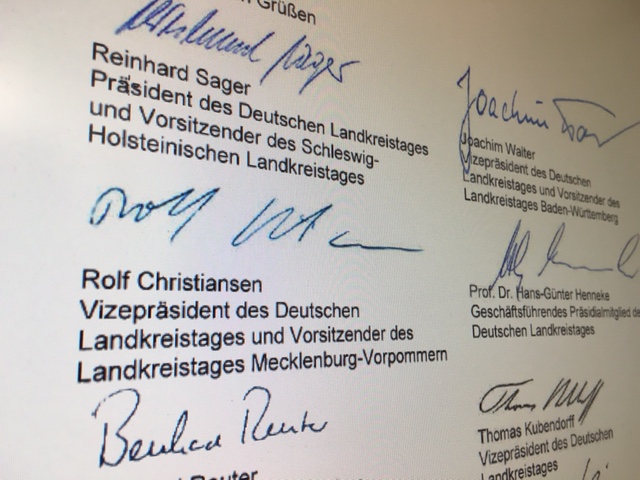 Grüßen
Reinhard Sager
Reinhard Sager
Präsident des Deutschen Landkreistages
und Vorsitzender des Schleswig-
Holsteinischen Landkreistages
Joachim Walter
Joachim Walter
Vizepräsident des Deutschen
Landkreistages und Vorsitzender des
Landkreistages Baden-Württemberg
Rolf
Rolf Christiansen
Vizepräsident des Deutschen
Landkreistages und Vorsitzender des
Landkreistages Mecklenburg-Vorpommern
Prof. Dr. Hans-Günter Henneke
Geschäftsführendes Präsidialmitglied des
Deutschen Landkreistages
Bernhard Reuter
Reuter
Thomas
Thomas Kubendorff
Vizepräsident des Deutschen
Landkreistages